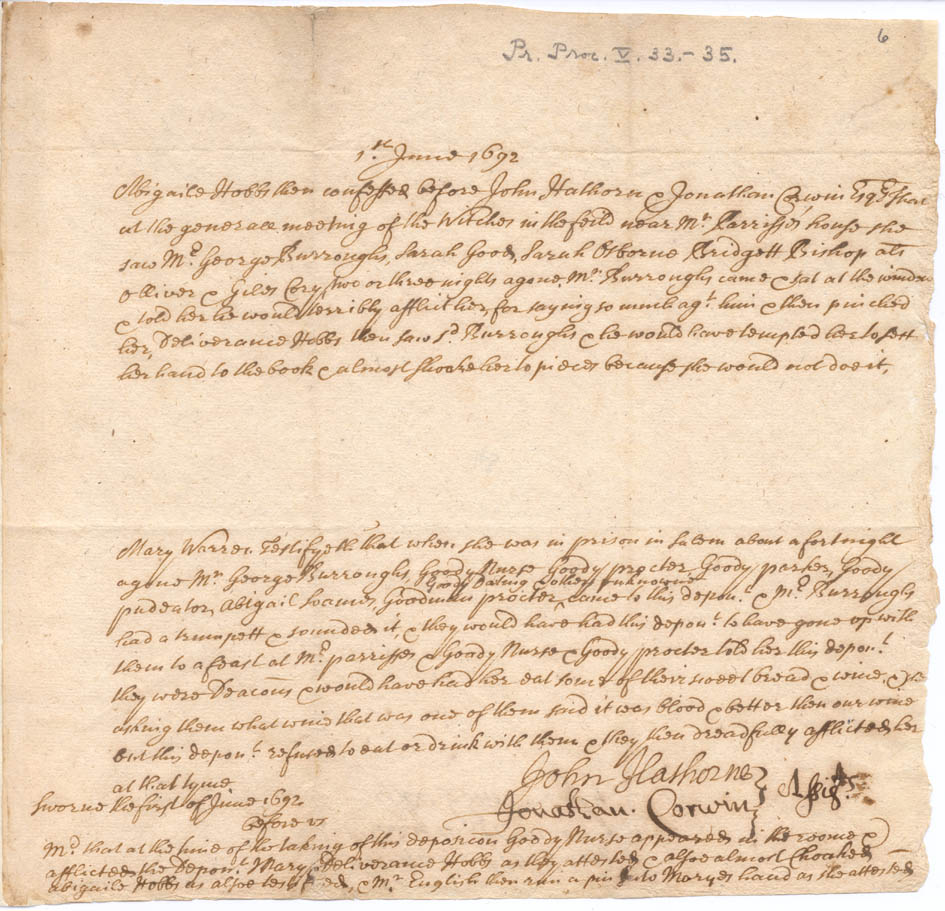 6
Pr. Proc. V. 33.-35.
1st June 1692
Abigaile Hobbs then confessed before John Hathorn & Jonathan Corwin Esqs That
at the generall meeting of the Witches in the feild near Mr Parrisses house she
saw Mr George Burroughs, Sarah Good, Sarah Osborne Bridgett Bishop als
Olliver & Giles Cory, two or three nights agone, Mr Burroughs came & sat at the window
& told her he would terribly afflict her, for saying so much agt him & then pinched
her, Deliverance Hobbs then saw sd Burroughs & he would have tempted her to sett
her hand to the book & almost shooke her to pieces because she would not doe it,
Mary Warren Testifyeth that when she was in prison in Salem about a fortnight
agone Mr George Burroughs, Goody Nurse Goody procter, Goody parker, Goody
pudeator, Abigail Soames, Goodman procter, Goody Darling & others unknowne came to this depont & Mr Burroughs
had a trumpett & sounded it, & they would have had this depont to have gone up with
them to a feast at Mr parrisses & Goody Nurse & Goody procter told her this depont
they were Deacons & would have had her eat some of their sweet bread & wine, & she
asking them what wine that was one of them said it was blood & better then our wine
but this depont refused to eat or drink with them & they then dreadfully afflicted her
at that tyme
Sworne the first of June 1692
John Hathorne
before us
Jonathan. Corwin } Assists
Md that at the time of the taking of this deposicon Goody Nurse appeared in the roome &
afflicted the Depont Mary & Deliverance Hobbs as they attested & alsoe almost Choaked
abigaile Hobbs as alsoe testifyed, & Mr English then run a pin into Maryes hand as she attested